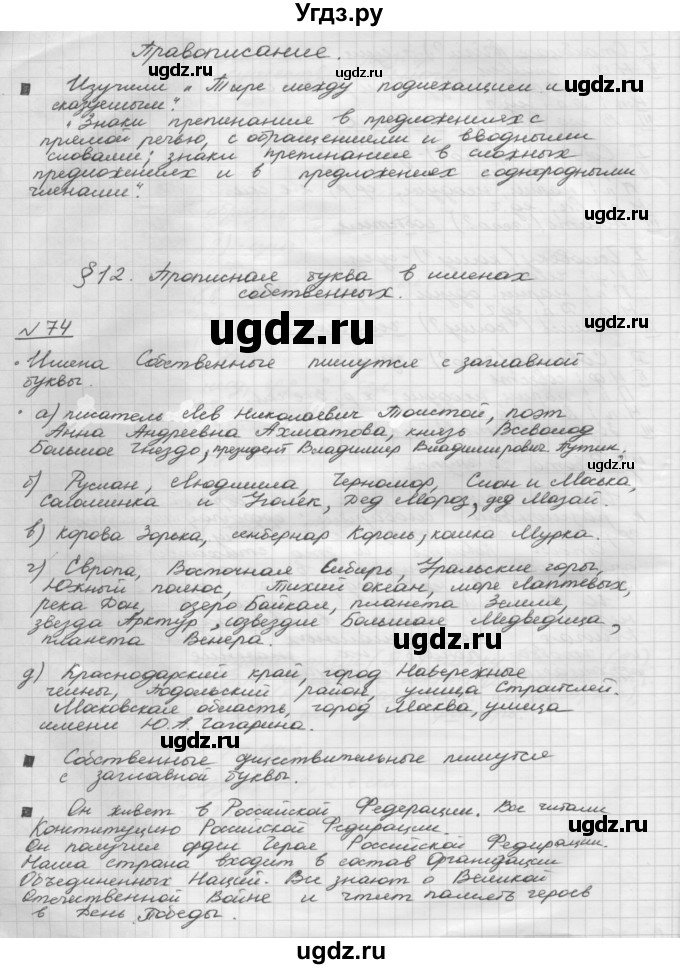 Угдз.ру
Правописание.
Изучили „Тире между подлежащим и
сказуемым".
„Знаки препинание в предложениях с
прямой речью, с обращениями и вводными
словами; знаки препинание в сложных
предложениях и в предложениях с однородными
членами".
ugdz.ru
ugdz.ru
§12. Прописная буква в именах
собственных.
№74
ugdz.ru
ugdz.ru
• Имена Собственные пишутся с заглавной
буквы.
• а) писатель Лев Николаевич Толстой, поэт
Анна Андреевна Ахматова, князь Всеволод
Большое Гнездо, президент Владимир Владимирович Путин.
ugdz.ru
б) Руслан, Людмила, Черномор, Слон и Моська,
Соломинка и Уголек, Дед Мороз, дед Мазай.
в) корова Зорька, сенбернар Король, кошка Мурка.
г) Европа, Восточная Сибирь, Уральские горы,
Южный полюс, Тихий океан, море Лаптевых,
река Дон, озеро Байкал, планета Земля,
звезда Арктур, созвездие Большая Медведица,
планета Венера.
ugdz.ru
ugdz.ru
д) Краснодарский край, город Набережные
челны, Подольский район, улица Строителей.
Московская область, город Москва, улица
имени Ю.А. Гагарина.
ugdz.ru
ugdz.ru
Собственные существительные пишутся
с заглавной буквы.
ugdz.ru
Он живет в Российской Федерации. Все читали
Конституцию Российской Федирации.
ugdz.ru
Он получил орден Герое Российской Федирации.
Наша Страна входит в состав Организации
Объединенных Наций. Все знают о Великой
Отечественной Войне и чтят память героев
в День Победы.
ugdz.ru
ugdz.ru